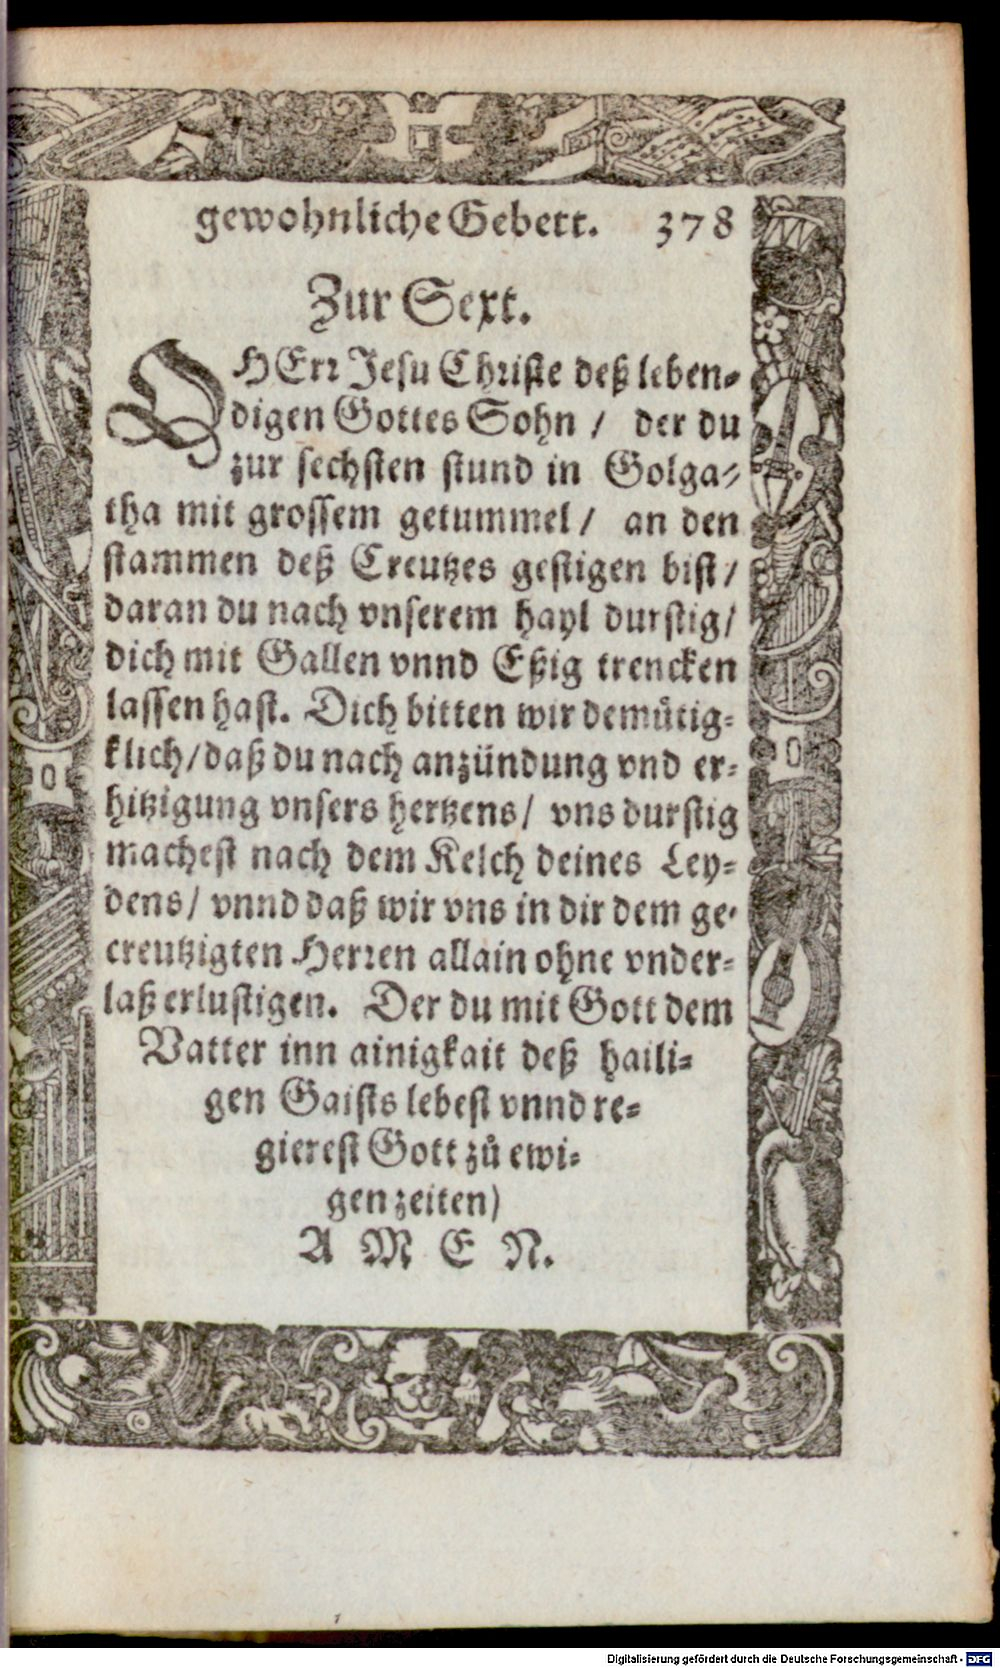 gewohnliche Gebett. 378
Zur Sext.
O HErr Jesu Christe deß leben-
digen Gottes Sohn / der du
zur sechsten stund in Golga-
tha mit grossem getummel / an den
stammen deß Creutzes gestigen bist /
daran du nach vnserem hayl durstig /
dich mit Gallen vnnd Eßig trencken
lassen hast. Dich bitten wir demütig-
klich / daß du nach anzündung vnd er-
hitzigung vnsers hertzens / vns durstig
machest nach dem Kelch deines Ley-
dens / vnnd daß wir vns in dir dem ge-
creutzigten Herren allain ohne vnder-
laß erlustigen. Der du mit Gott dem
Vatter inn ainigkait deß haili-
gen Gaists lebest vnnd re-
gierest Gott zů ewi-
gen zeiten)
A M E N.
Digitalisierung gefördert durch die Deutsche Forschungsgemeinschaft - DFG